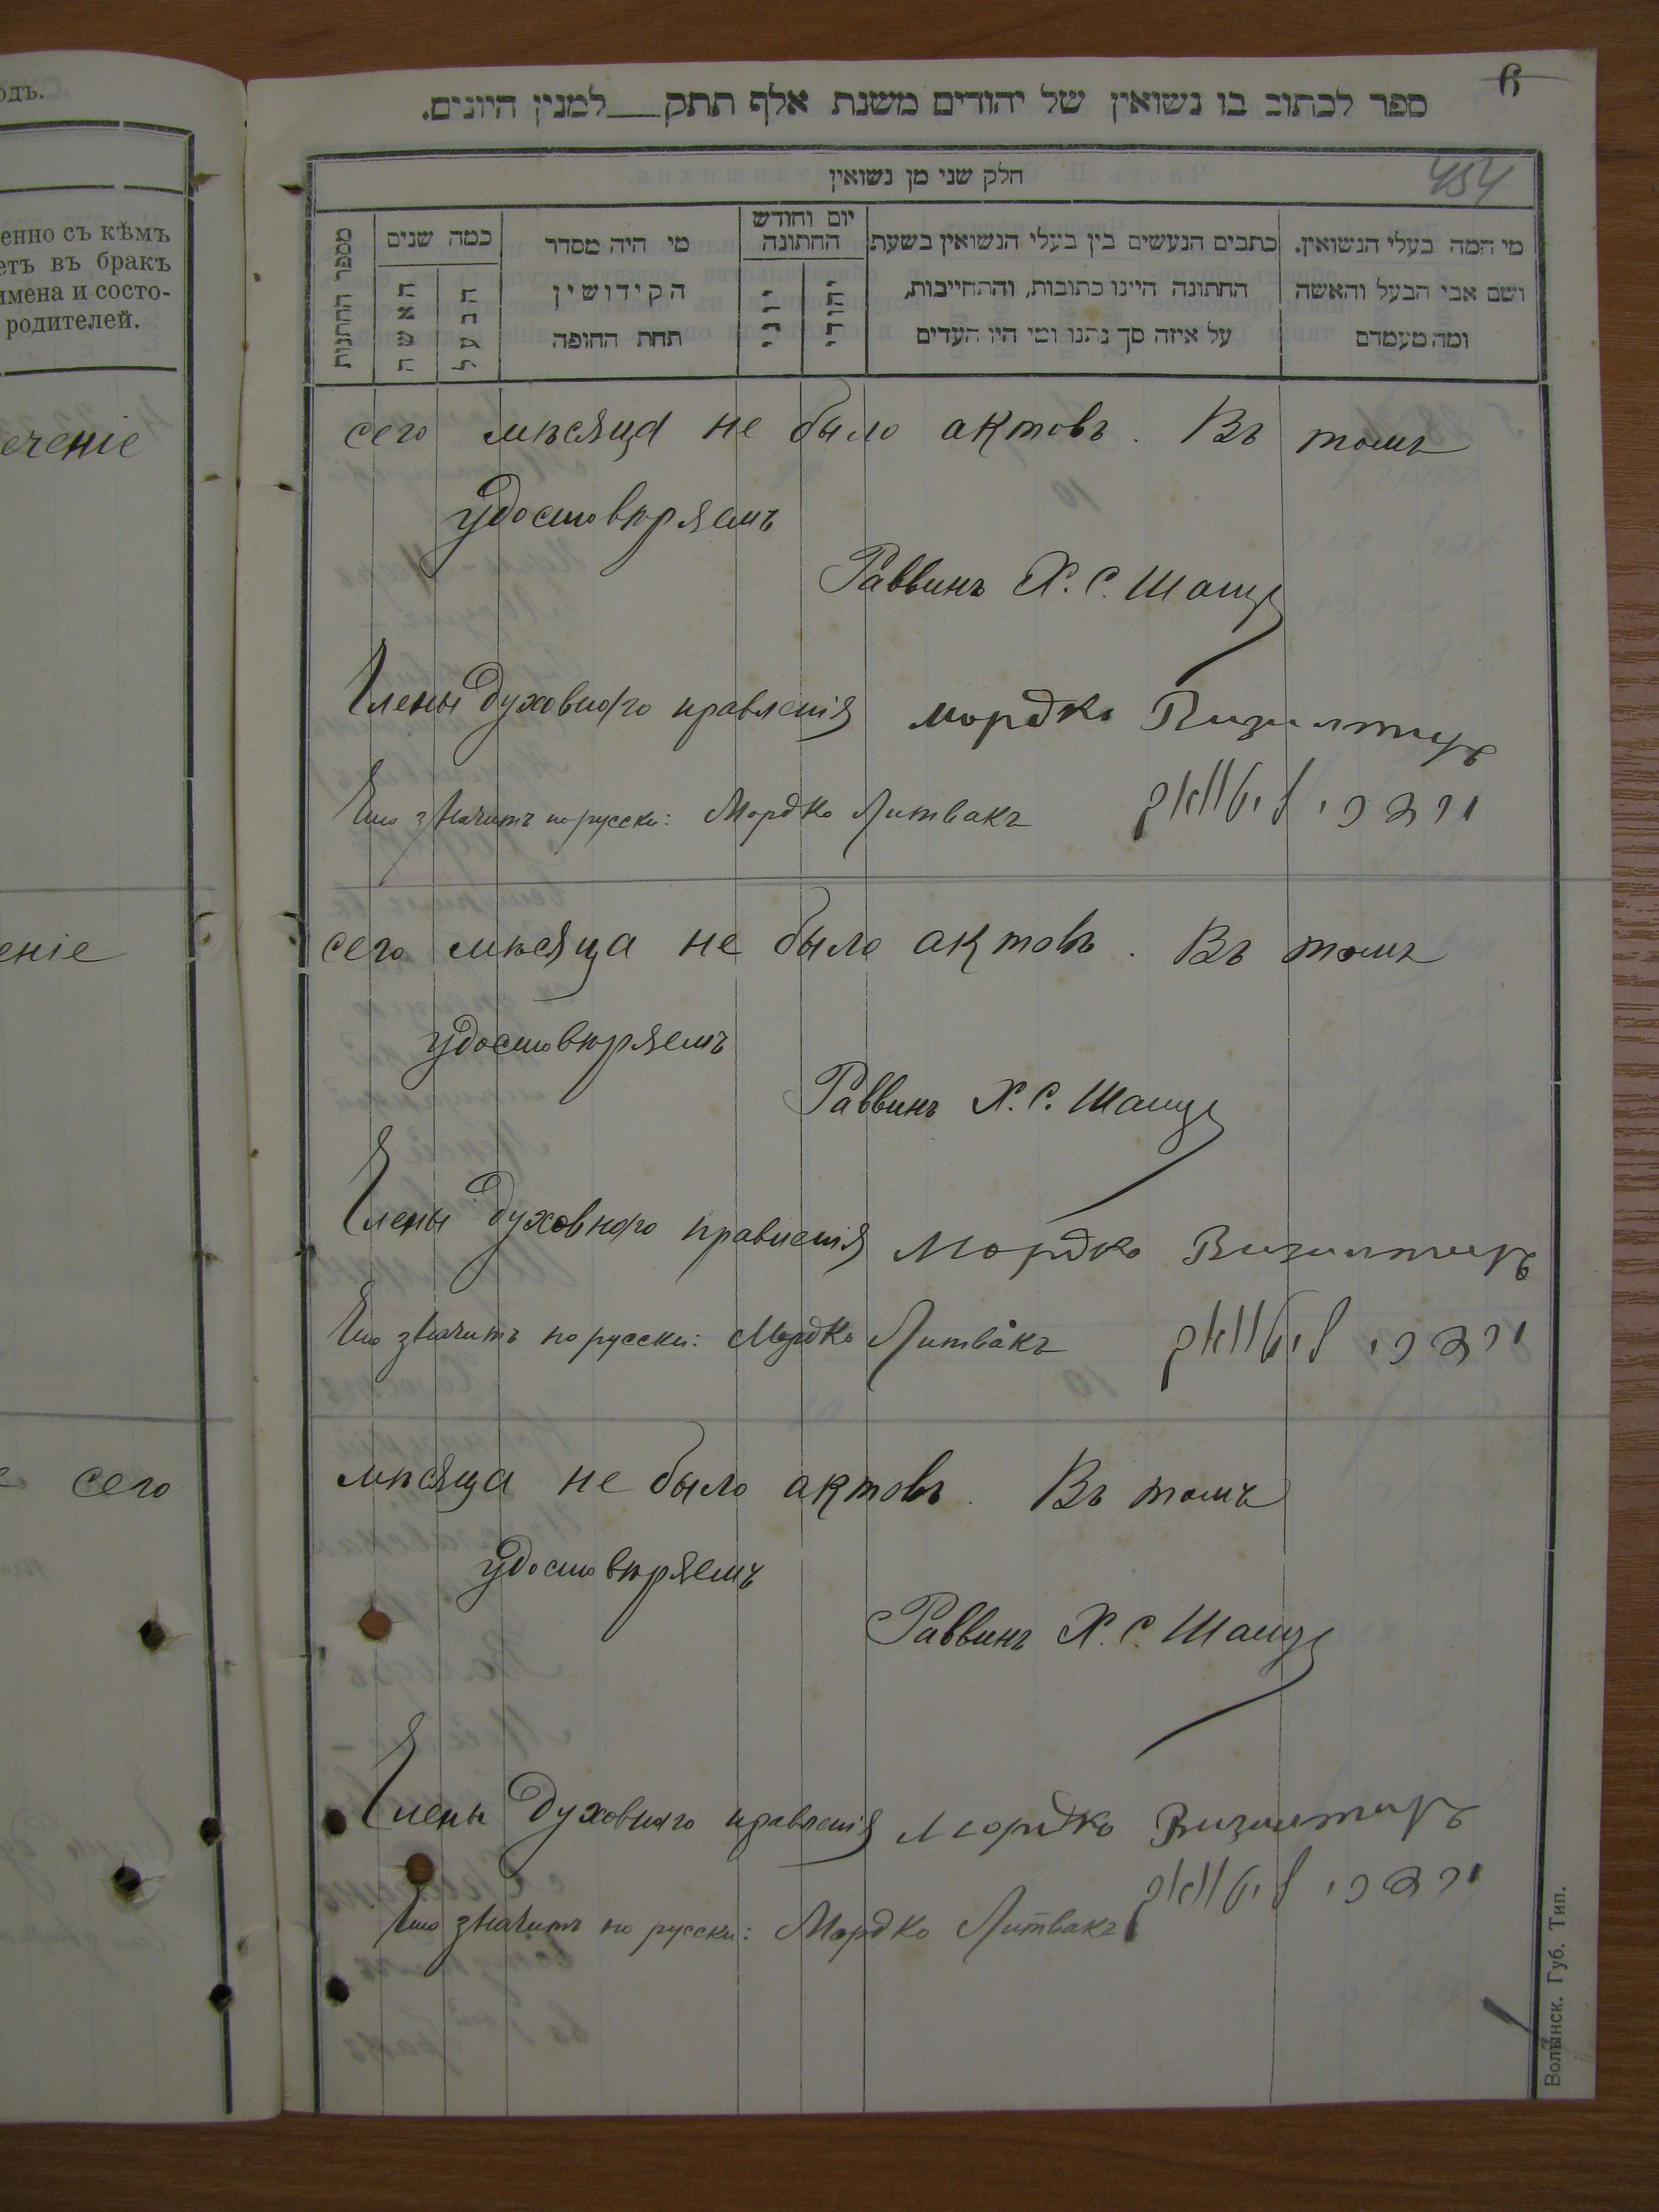 одъ.
енно съ кѣмъ
етъ въ бракъ
имена и состо-
родителей.
ечение
ение
сего
6
ספר לכתוב בו נשואין של יהודים משנת אלף תתק___למנין היונים.
חלק שני מן נשואין
454
מספר החתונות
כמה שנים
האשה
הבעל
מי היה מסדר
הקידושין
תחת החופה
יום וחודש
החתונה
יוני
יהודי
כתבים הנעשים בין בעלי הנשואין בשעת
החתונה היינו כתובות, והתחייבות,
על איזה סך נתנו ומי היו העדים
מי המה בעלי הנשואין.
ושם אבי הבעל והאשה
ומה מעמדם
сего мѣсяца не было актовъ. Въ томъ
удостовѣряемъ
Раввинъ Х. С. Шанц
Члены духовного правленія Мордко
Это значитъ по русски: Мордко Литвакъ מרדכי ליטוואק
сего мѣсяца не было актовъ. Въ томъ
удостовѣряемъ
Раввинъ Х. С. Шанц
Члены духовного правленія Мордко Визилтиръ
Это значитъ по русски: Мордко Литвакъ מרדכי ליטוואק
мѣсяца не было актовъ. Въ томъ
удостовѣряемъ
Раввинъ Х. С. Шанц
Члены духовного правленія Мордко Визилтиръ
מרדכי ליטוואק
Это значитъ по русски: Мордко Литвакъ
Волынск. Губ. Тип.